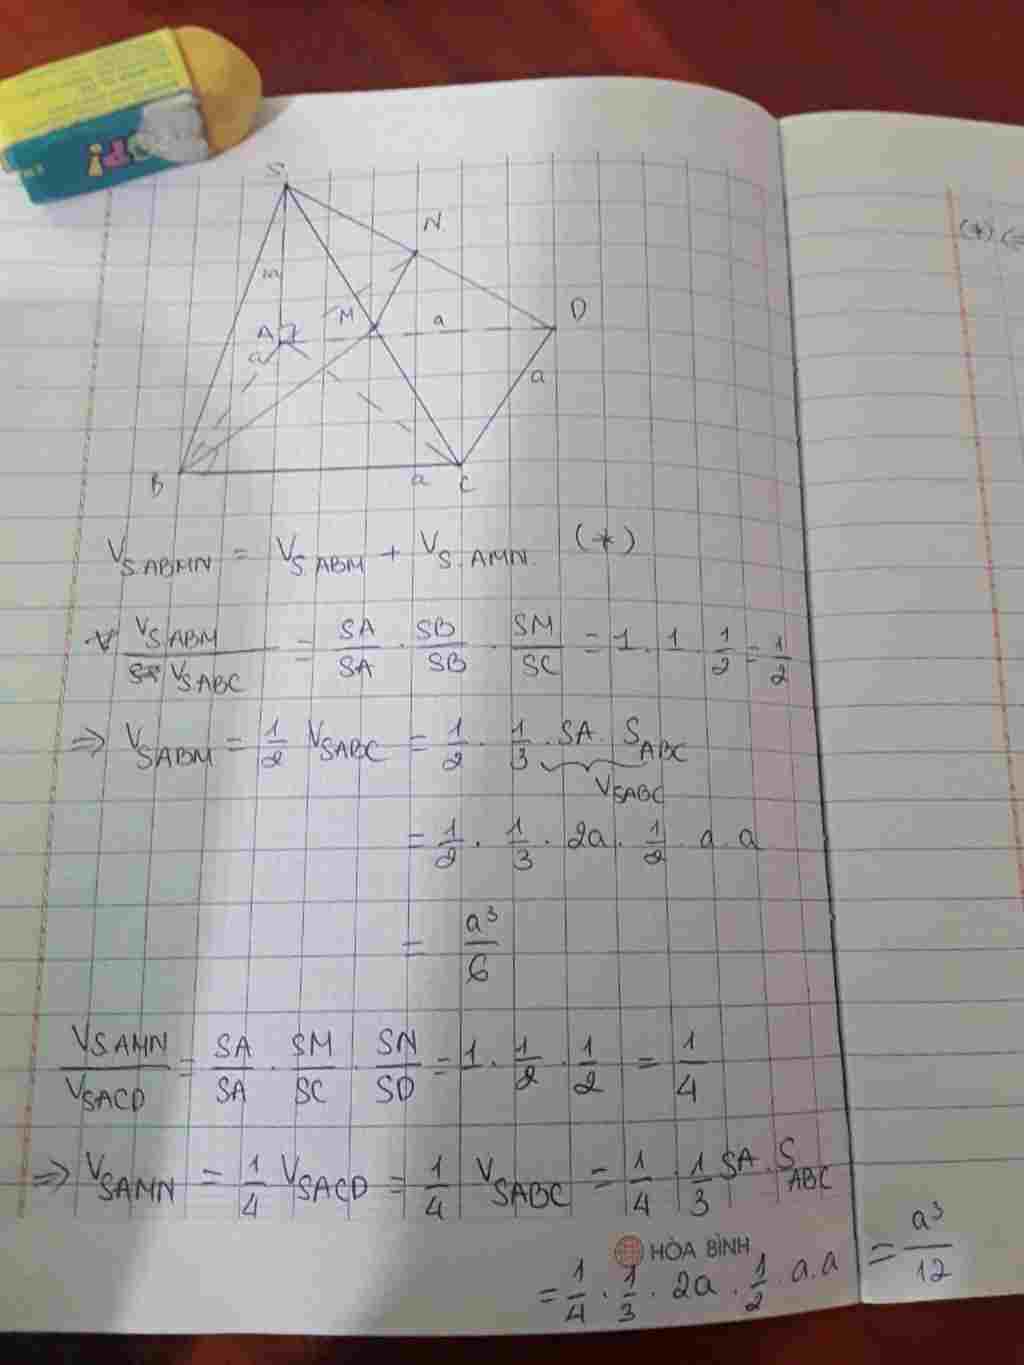 S
N
m
A
M
a
D
a
a
B
a
C
V_{S.ABMN} = V_{S.ABM} + V_{S.AMN} (*)
V_{SABM} / V_{SABC} = SA/SA . SB/SB . SM/SC = 1 . 1 . 1/2 = 1/2
=> V_{SABM} = 1/2 V_{SABC} = 1/2 . 1/3 . SA . S_{ABC}
V_{SABC}
= 1/2 . 1/3 . 2a . 1/2 . a . a
= a³/6
V_{SAMN} / V_{SACD} = SA/SA . SM/SC . SN/SD = 1 . 1/2 . 1/2 = 1/4
=> V_{SAMN} = 1/4 V_{SACD} = 1/4 V_{SABC} = 1/4 . 1/3 SA . S_{ABC}
HÒA BÌNH
= 1/4 . 1/3 . 2a . 1/2 . a.a = a³/12